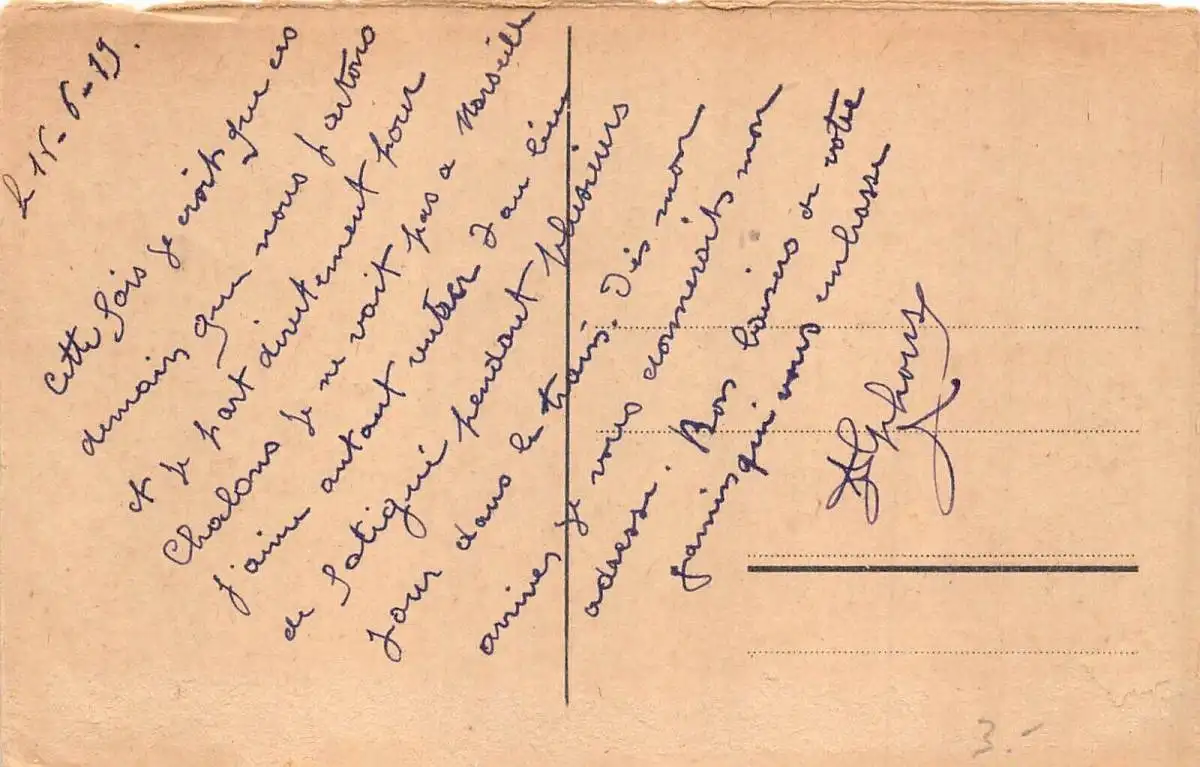 le 15-6-19.
Cette fois je croit que ces
demain que nous partons
et je part directement pour
Chalons je ne vait pas a Marseille
j'aime autant
de fatigué pendant plusieurs
jour dans le train. Dès mon
arrivés je vous donnerait mon
adresse. Bons baisers de votre
qui vous embrasse
Alphonse
3.-